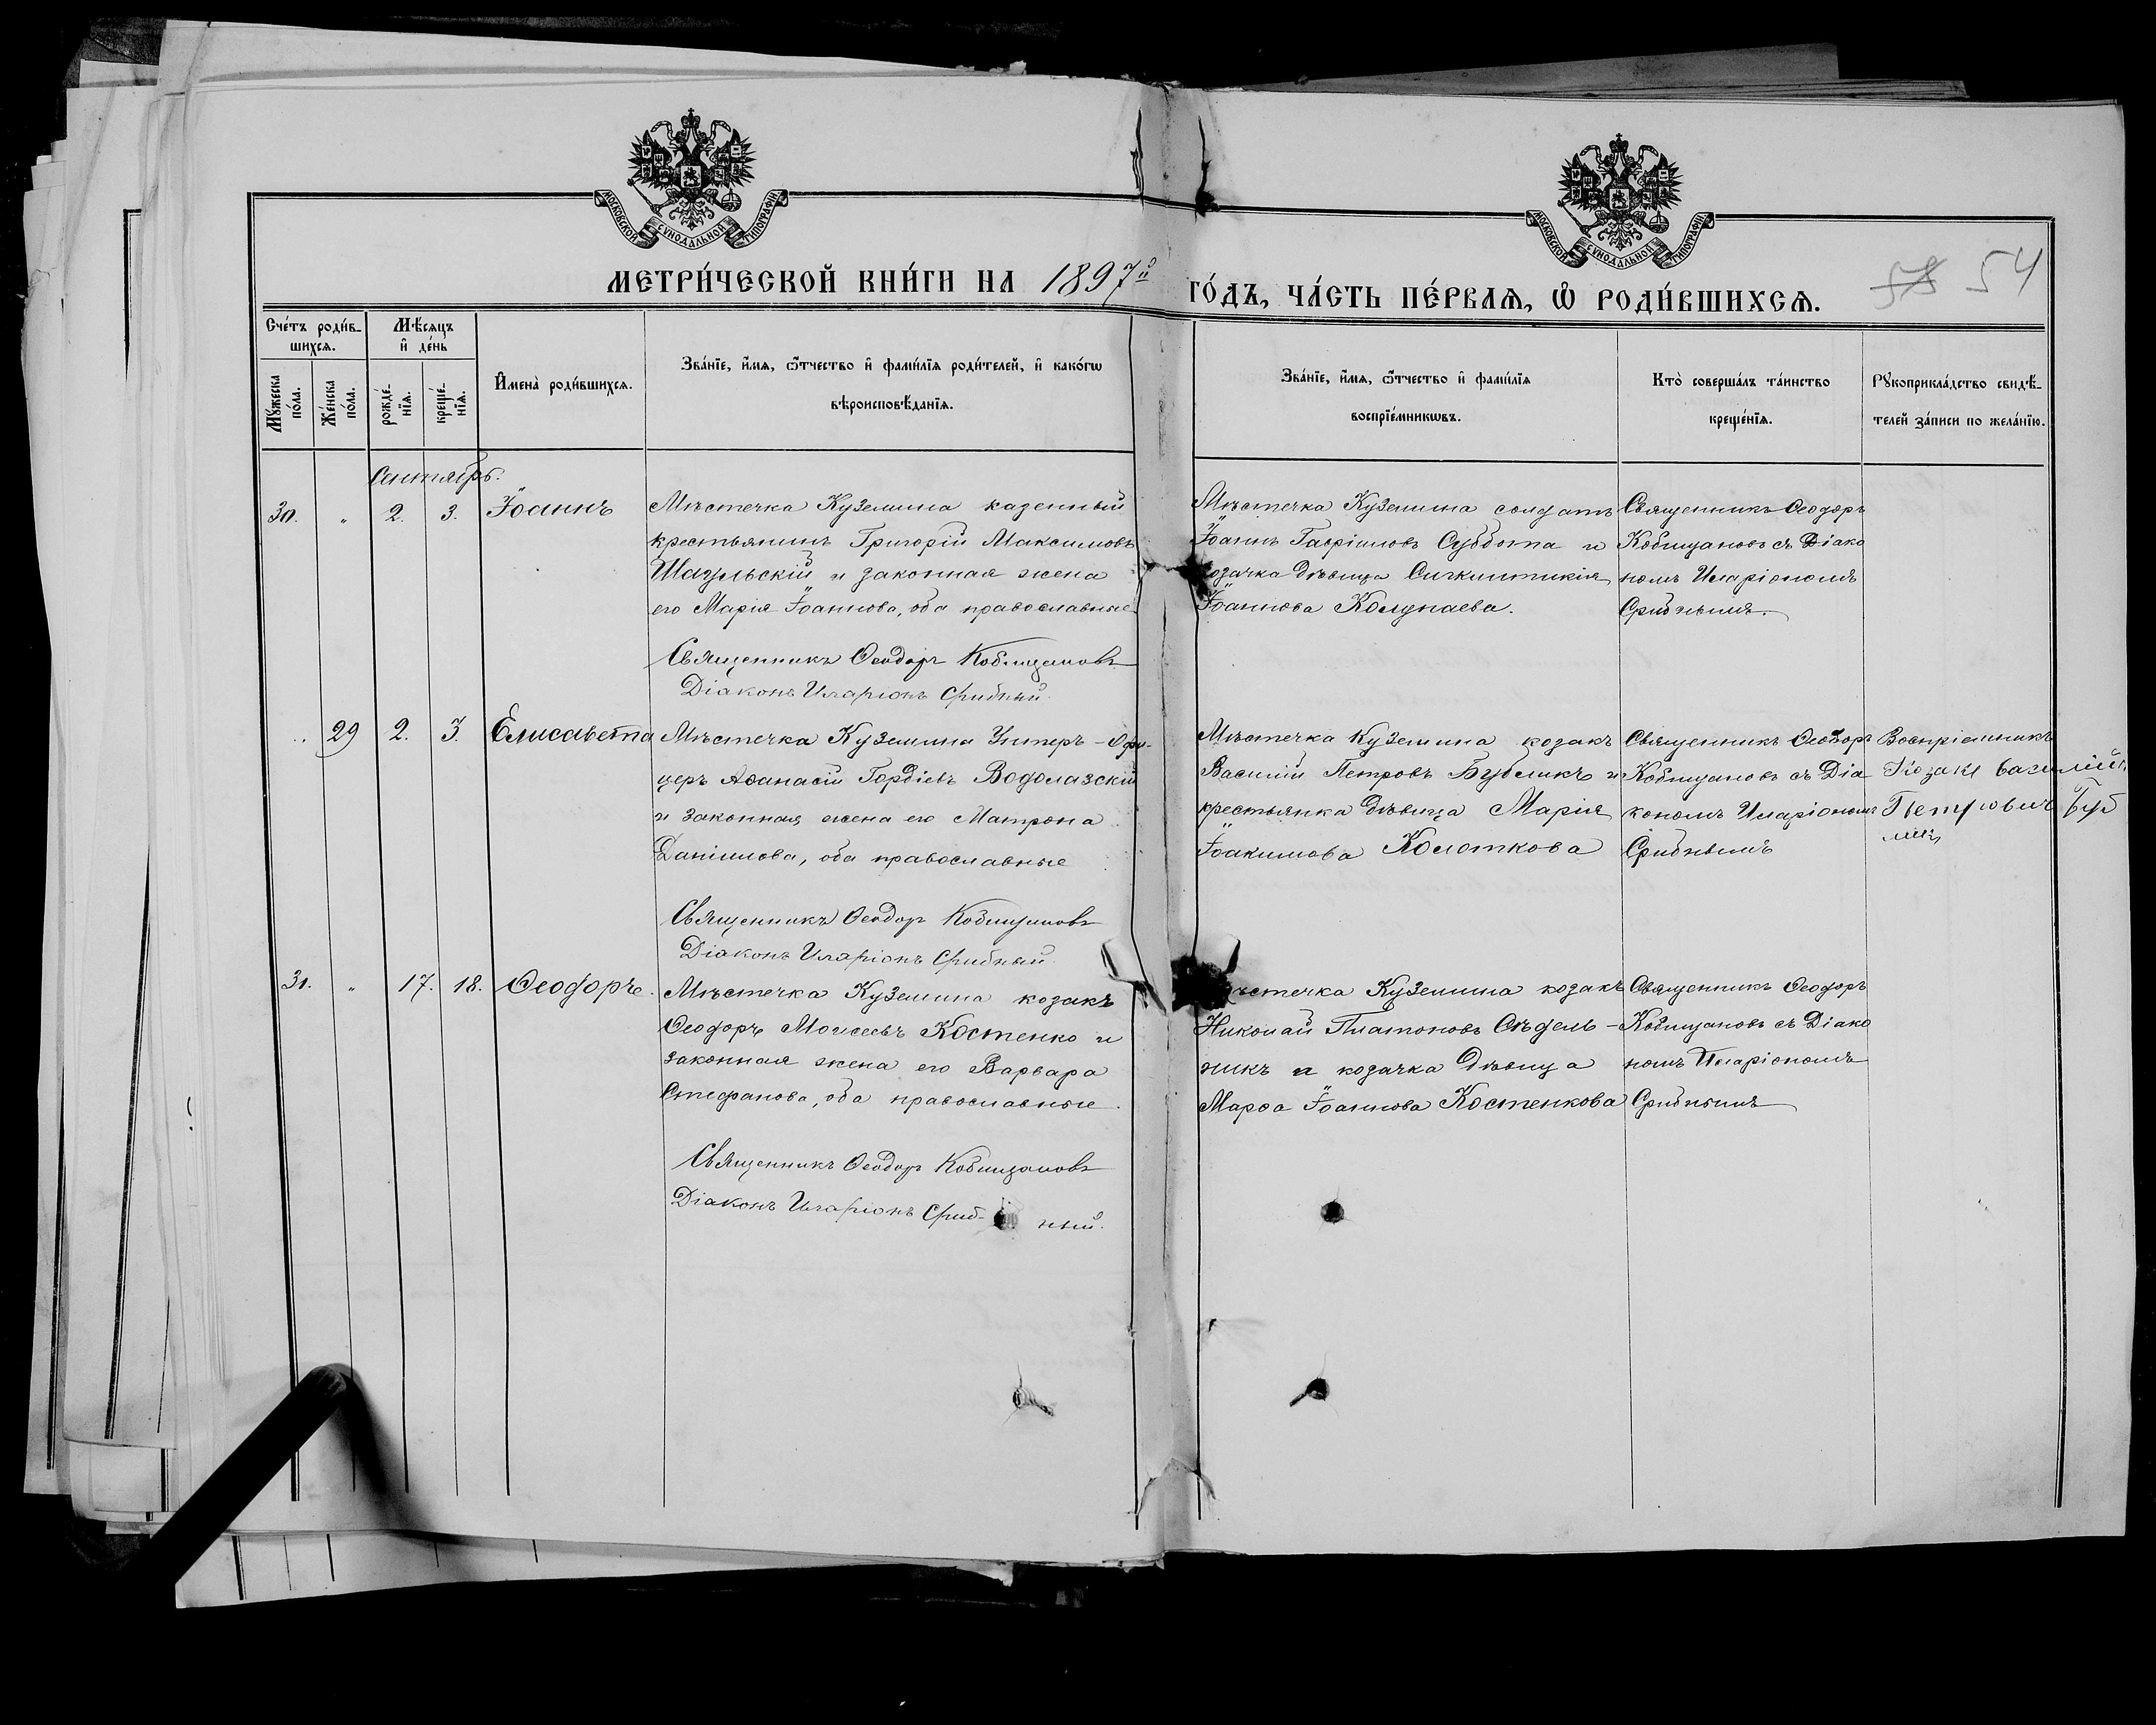 МОСКОВСКОЙ СѴНОДАЛЬНОЙ ТИПОГРАФІИ
МОСКОВСКОЙ СѴНОДАЛЬНОЙ ТИПОГРАФІИ
МЕТРИ́ЧЕСКОЙ КНИ́ГИ НА 1897й ГО́ДЪ, ЧА́СТЬ ПЕ́РВАЯ, Ѡ҆ РОДИ́ВШИХСЯ.
54
Сче́тъ роди́в-
шихся.
Мѣ́сяцъ
и҆ де́нь
Мꙋ́жеска
по́ла.
Же́нска
по́ла.
рожде́-
нїя.
креще́-
нїя.
И҆мена̀ роди́вшихся.
Зва́нїе, и҆́мя, ѻ҆́тчество и҆ фами́лїя роди́телей, и҆ како́гѡ
вѣроисповѣ́данїя.
Зва́нїе, и҆́мя, ѻ҆́тчество и҆ фами́лїя
воспрїе́мникѡвъ.
Кто̀ соверша́лъ та́инство
креще́нїя.
Рꙋкоприкла́дство свидѣ́-
телей за́писи по жела́нїю.
Сентябрь.
30. " 2. 3. Іоаннъ
Мѣстечка Куземина казенный
крестьянинъ Григорій Максимовъ
и законная жена
его Марія Іоаннова, оба православные
Священникъ Ѳеодоръ Кобищановъ
Діаконъ Иларіонъ Срибный.
Мѣстечка Куземина солдатъ
Іоаннъ Гавріиловъ Суббота и
козачка дѣвица Синклитикія
Іоаннова Колупаева.
Священникъ Ѳеодоръ
Кобищановъ съ Діако
номъ Иларіономъ
Срибнымъ.
" 29 2. 3. Елисавета
Мѣстечка Куземина Унтеръ-Офи-
церъ Аѳанасій Гордіевъ Водолазскій
и законная жена его Матрона
Даніилова, оба православные
Священникъ Ѳеодоръ Кобищановъ
Діаконъ Иларіонъ Срибный.
Мѣстечка Куземина козакъ
Василій Петровъ Бубликъ и
крестьянка дѣвица Марія
Іоакимова Колоткова
Священникъ Ѳеодоръ
Кобищановъ съ Діа
кономъ Иларіономъ
Срибнымъ
Воспріемникъ
Козакъ Василій
Петровичъ Буб
ликъ
31. " 17. 18. Ѳеодоръ.
Мѣстечка Куземина козакъ
Ѳеодоръ Моисеевъ Костенко и
законная жена его Варвара
Стефанова, оба православные.
Священникъ Ѳеодоръ Кобищановъ
Діаконъ Иларіонъ Сриб-ный.
Мѣстечка Куземина козакъ
Николай Платоновъ Сѣдель-
никъ и козачка дѣвица
Марѳа Іоаннова Костенкова
Священникъ Ѳеодоръ
Кобищановъ съ Діако
номъ Иларіономъ
Срибнымъ